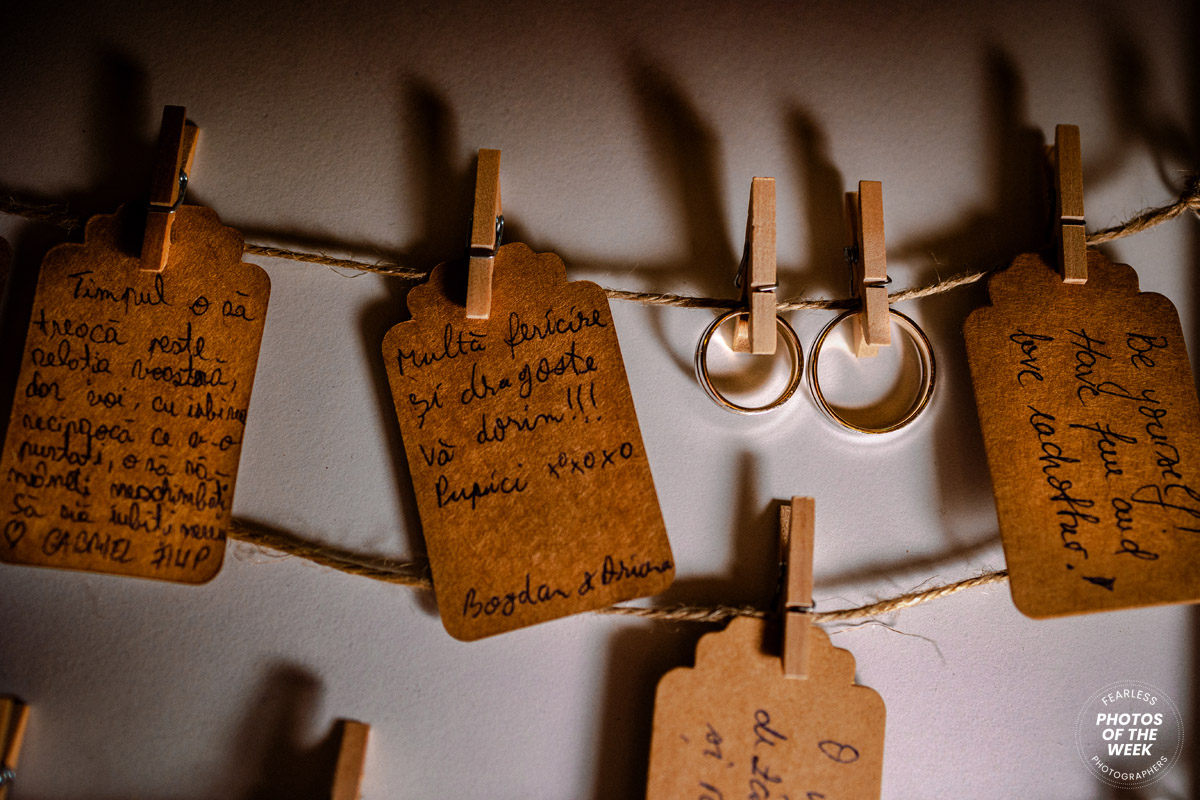 Timpul o să
treacă peste
relația voastră,
dar voi, cu iubirea
ce v-o
purtați, o să rămâneți neschimbați
Să vă iubiți mereu
♡ GABRIEL FILIP
Multă fericire
și dragoste
vă dorim!!!
Pupici xoxoxo
Bogdan & Ariana
Be yourself!
Have fun and
love eachother!
O
si
FEARLESS
PHOTOS
OF THE
WEEK
PHOTOGRAPHERS